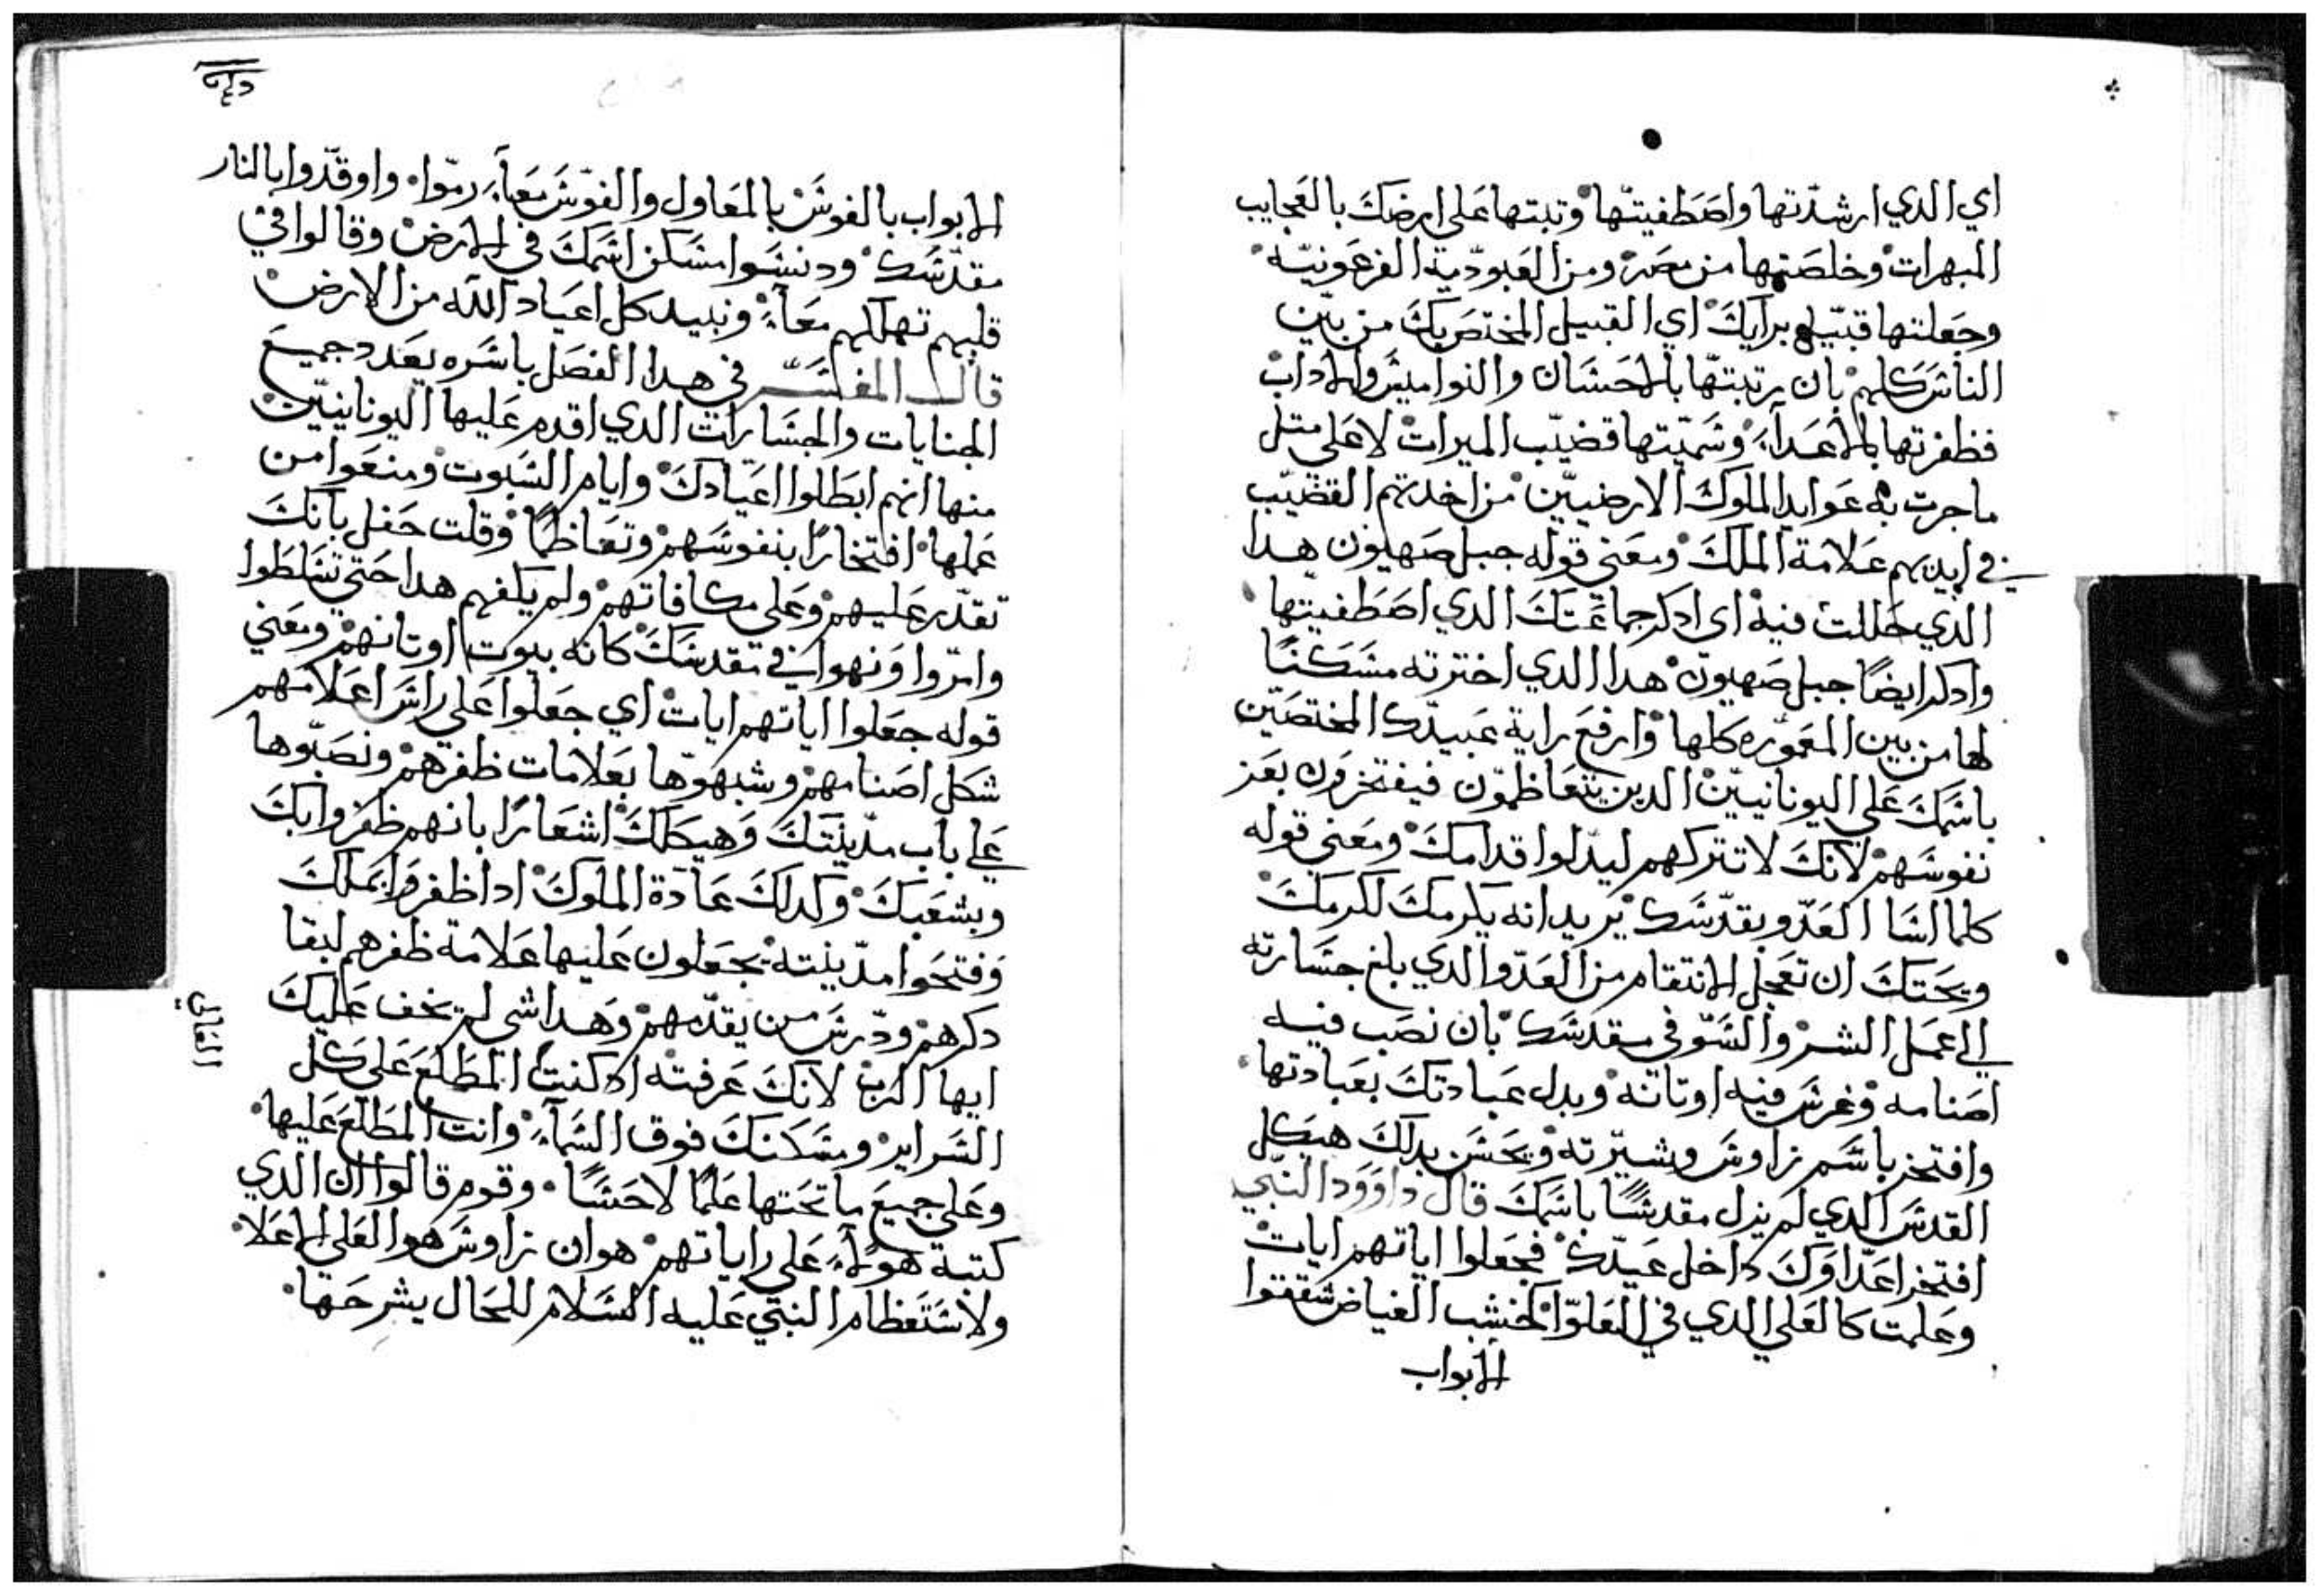 اي الدي ارشدّتها واصَطَفيتّها وتبتها عَلى ارضكَ بالعَجايب
المبهرات وخلصَتها من مصَر ومن العَبودّية الفرعَونيّه
وجَعلتها قبيّله برايكَ اي القبيل المختصَ بكَ من بيّن
الناسَ كلهم بان رتبتّها بالاحسَان والنواميسَ والاداب
فظفرتها بالاعَدآء وسَميّتها قضيّب الميرات لا عَلى متل
ما جرت به عَوايد الملوكَ الارضييّن من اخدتهم القضيّب
في ايديهم عَلامة الملكَ ومعَني قوله جبل صَهيون هدا
الدي حَللت فيه اي ادكر جماعَتكَ الدي اصَطَفيتّها
وادكر ايضًا جبل صَهيون هدا الدي اخترته مسَكنًا
لها من بين المعَمّوره كلها وارفعَ راية عَبيدّك المختصَيّن
باسَمكَ عَلي اليونانييّن الدين يتعَاظمّون فيفتخرون بعَز
نفوسَهم لانكَ لا تتركهم ليدّلوا قدامكَ ومعَني قوله
كلما اسَا العَدّو بقدّسَك يريد انه يكرمكَ لكرمكَ
ويحَتكَ ان تعَجل الانتقام من العَدّو الدي بلغ جسَارته
الي عمَل الشر والسَوّ في مقدسَك بان نصَب فيه
اصَنامه وغرسَ فيه اوتانه وبدل عَبادتكَ بعَبادتها
وافتخر باسَم زاوسَ وسَيّرته ويحَسَن بدالكَ هيكل
القدسَ الدي لم يزل مقدسًَا باسَمكَ قال داوَود النبّي
افتخر اعَدّاوَكَ داخل عَيدّك فجَعلوا اياتهم ايات
وعَلمت كالعَلي الدي في العَلوّ كخشب الغياض شققوا
الابواب
الابواب بالفوسَ بالمعَاول والفوّسَ معَاً رمّوا واوقدّوا بالنار
مقدّسَك ودنسَوا مسَكن اسَمكَ في الارض وقالوا في
قلبهم تهلكهم معَاً ونبيد كل اعَياد الله من الارض
قال المفسَّر في هدا الفصَل باسَره يعَدد جميعَ
الجنايات والجسَارات الدي اقدم عَليها اليونانييّن
منها انهم ابطَلوا اعَيادكَ وايام السَبوت ومنعَوا من
عَملها افتخارًا بنفوسَهم وتعَاظمًا وقلت حَفل بانكَ
تقدّر عَليهم وعَلى مكافاتهم ولم يكفهم هدا حَتي تسَلطَوا
وامرّوا وَنهوا في مقدسَكَ كانه بيوت اوتانهم ومعَني
قوله جعَلوا اياتهم ايات اي جعَلوا عَلى راسَ اعَلامهم
شكل اصَنامهم وشبهوّها بعَلامات ظفرهم ونصَبّوها
عَلي باب مدّينتكَ وَهيكلكَ اشعَارًا بانهم ظفروا بكَ
وبشعَبكَ وكدلكَ عَادة الملوكَ ادا ظفروا بملكَ
وَفتحَوا مدّينته يجعَلون عَليها عَلامة ظفرهم لبقا
دكرهم ودّرسَ من يقدّمهم وَهدا شي لم يخف عَليكَ
ايها الرب لانكَ عَرفته اد كنت المطَلعَ عَلى كل
السَراير ومسَكنكَ فوق السَمآء وانت المطَلعَ عَليها
وعَلى جميعَ ما تحَتها عَلمًا لا حَسًَا وقوم قالوا ان الدي
كتبة هولآء عَلى راياتهم هو ان زاوسَ هو العَلي الاعَلا
ولاسَتعَظام النبيّ عَليه السَلام للحَال يشرحَها
التالي